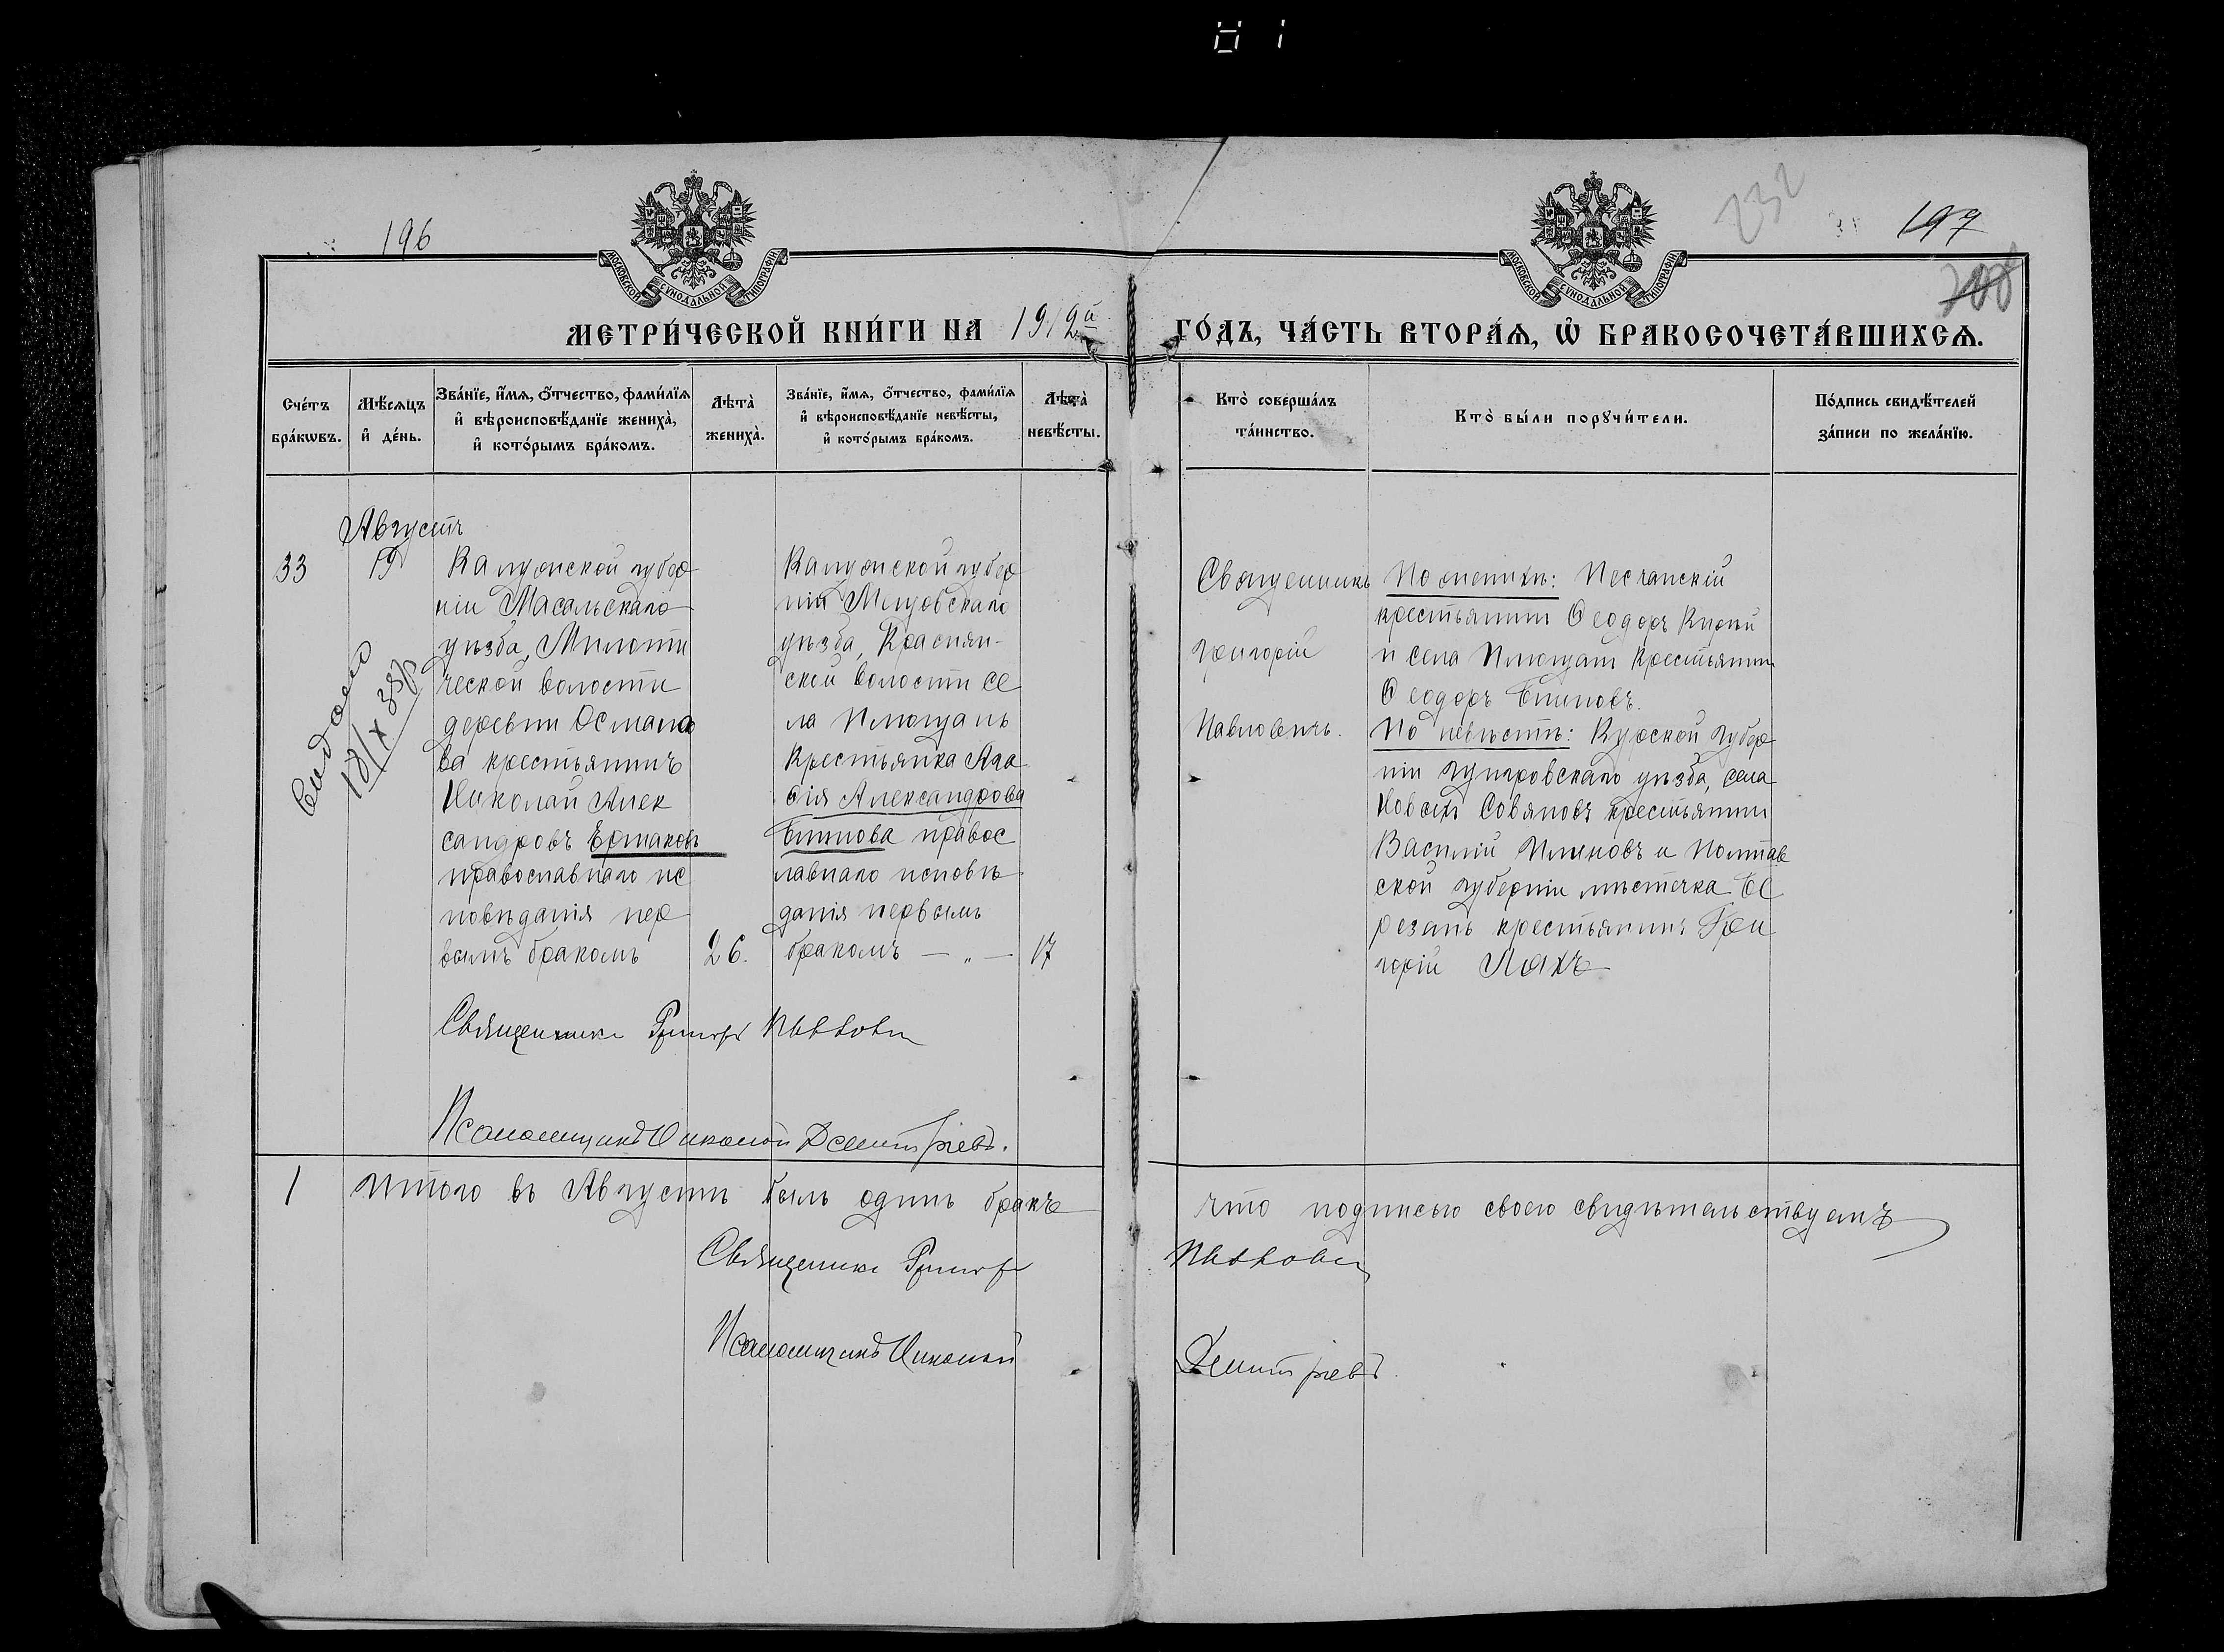 196
232
197
МОСКОВСКОЙ СѴНОДАЛЬНОЙ ТИПОГРАФІИ
МОСКОВСКОЙ СѴНОДАЛЬНОЙ ТИПОГРАФІИ
МЕТРИ́ЧЕСКОЙ КНИ́ГИ НА 1912й
ГО́ДЪ, ЧА́СТЬ ВТОРА́Ѧ, Ѽ БРАКОСОЧЕТА́ВШИХСѦ.
Сче́тъ бра́кѡвъ.
Мѣ́сѧцъ и҆ де́нь.
Зва́нїе, и҆́мѧ, ѻ҆́тчество, фами́лїѧ
и҆ вѣроисповѣ́данїе жениха̀,
и҆ кото́рымъ бра́комъ.
Лѣ́та̀ жениха̀.
Зва́нїе, и҆́мѧ, ѻ҆́тчество, фами́лїѧ
и҆ вѣроисповѣ́данїе невѣ́сты,
и҆ кото́рымъ бра́комъ.
Лѣта̀ невѣ́сты.
Кто̀ соверша́лъ та́инство.
Кто̀ бы́ли порꙋчи́тели.
По́дпись свидѣ́телей
за́писи по жела́нїю.
Августъ
33
19
Калужской губер
ніи Масальскаго
уѣзда, Милоти
ческой волости
деревни Остапо
ва крестьянинъ
Николай Алек
сандровъ Ермаковъ
православнаго ис
повѣданія пер
вымъ бракомъ
26.
Калужской губер
ніи Мещовскаго
уѣзда,
ской волости се
ла Клюксань
крестьянка Ага
фія Александрова
правос
лавнаго исповѣ
данія первымъ
бракомъ — „ —
17
18/X 38г
Священникъ
Григорій
Павловичъ.
По женихѣ: Песчанскій
крестьянинъ Ѳеодоръ
и села крестьянинъ
Ѳеодоръ
По невѣстѣ: Курской губер
ніи уѣзда, села
крестьянинъ
Василій и Полтав
ской губерніи мѣстечка Бе
резань крестьянинъ Гри
горій Ляхъ
Священникъ Григор
Псаломщикъ Николай Дмитріевъ.
1
Итого въ Августѣ былъ одинъ бракъ
что подписью своею свидѣтельствуемъ
Священникъ Григор
Псаломщикъ Николай
Дмитріевъ